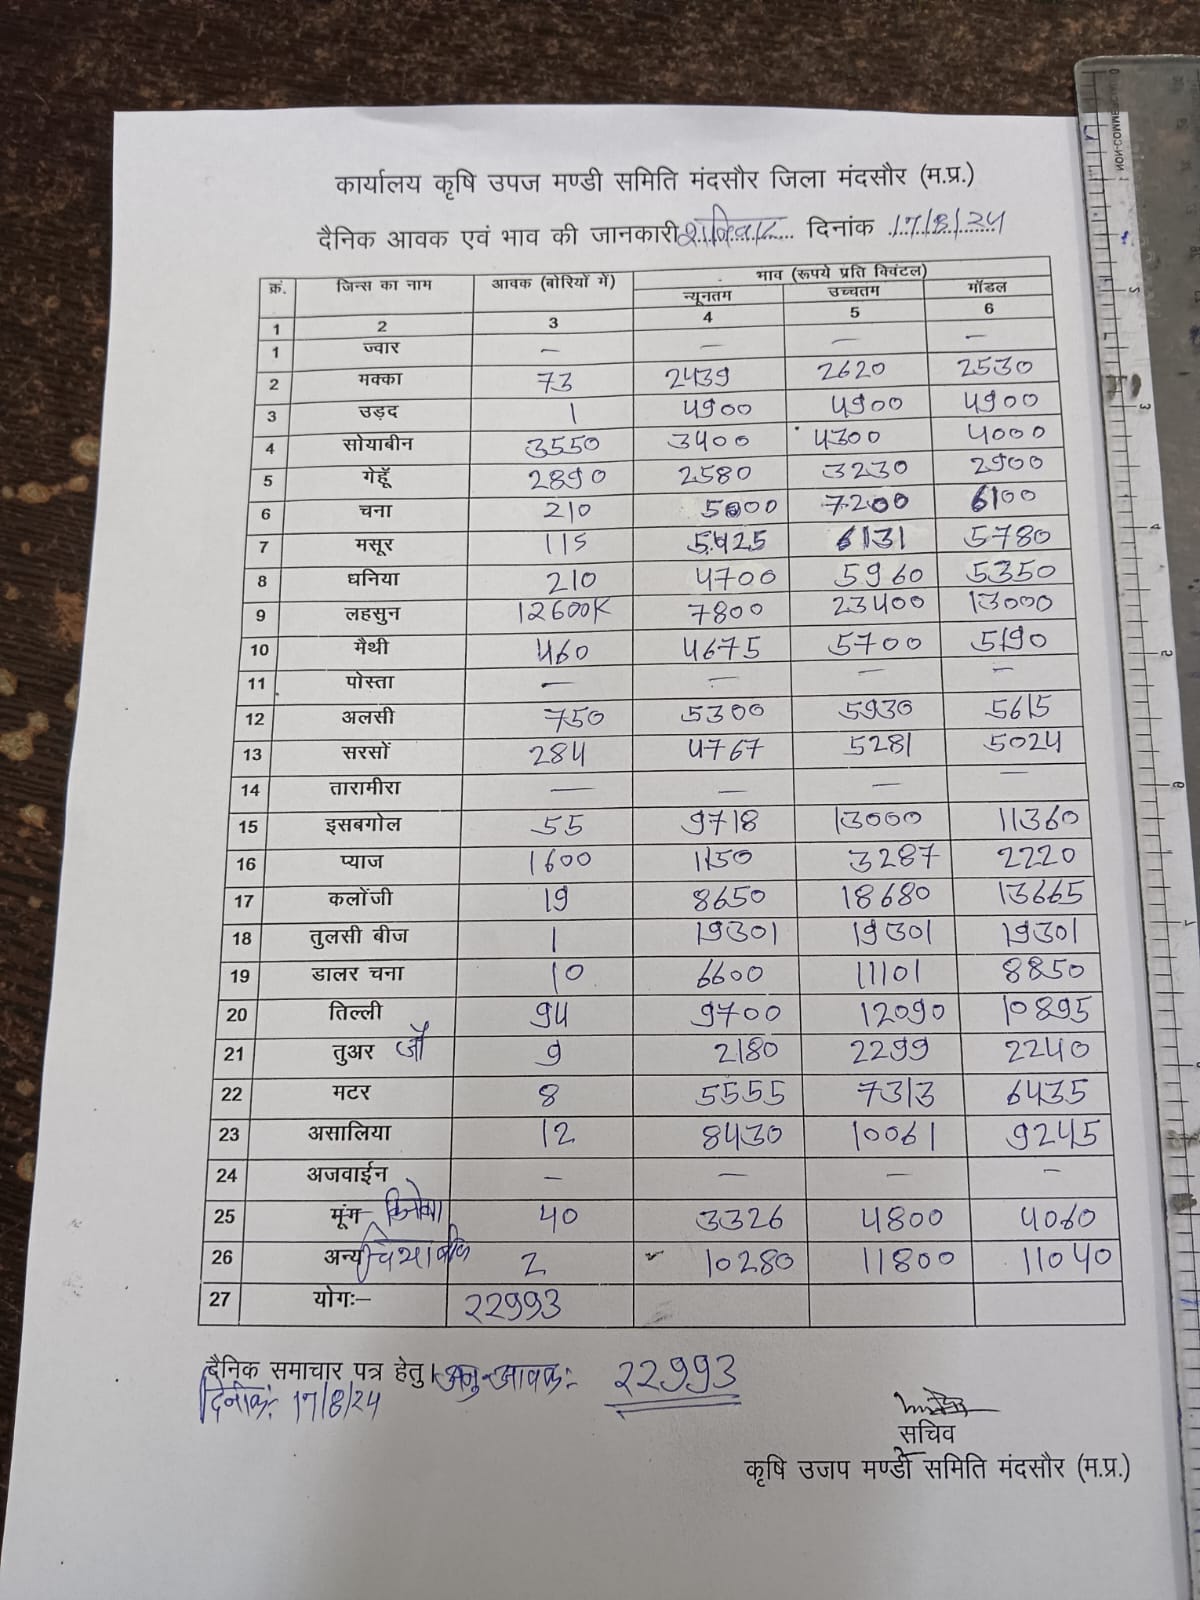 कार्यालय कृषि उपज मण्डी समिति मंदसौर जिला मंदसौर (म.प्र.)
दैनिक आवक एवं भाव की जानकारी शनिवार दिनांक 17/8/24
क्रं. जिन्स का नाम आवक (बोरियों में) भाव (रूपये प्रति क्विंटल)
न्यूनतम उच्चतम मॉडल
1 2 3 4 5 6
1 ज्वार — — — —
2 मक्का 73 2439 2620 2530
3 उड़द 1 4900 4900 4900
4 सोयाबीन 3550 3400 4300 4000
5 गेहूँ 2890 2580 3230 2900
6 चना 210 5000 7200 6100
7 मसूर 115 5425 6131 5780
8 धनिया 210 4700 5960 5350
9 लहसुन 12600K 7800 23400 13000
10 मैथी 460 4675 5700 5190
11 पोस्ता — — — —
12 अलसी 750 5300 5930 5615
13 सरसों 284 4767 5281 5024
14 तारामीरा — — — —
15 इसबगोल 55 9718 13000 11360
16 प्याज 1600 1150 3287 2220
17 कलोंजी 19 8650 18680 13665
18 तुलसी बीज 1 19301 19301 19301
19 डालर चना 10 6600 11101 8850
20 तिल्ली 94 9700 12090 10895
21 तुअर जौ 9 2180 2299 2240
22 मटर 8 5555 7313 6435
23 असालिया 12 8430 10061 9245
24 अजवाईन — — — —
25 मूंग 40 3326 4800 4060
26 अन्य चिया बीज 2 10280 11800 11040
27 योगः– 22993
दैनिक समाचार पत्र हेतु। अनु. आवक:- 22993
दिनांक: 17/8/24
सचिव
कृषि उजप मण्डी समिति मंदसौर (म.प्र.)
NON-COMM